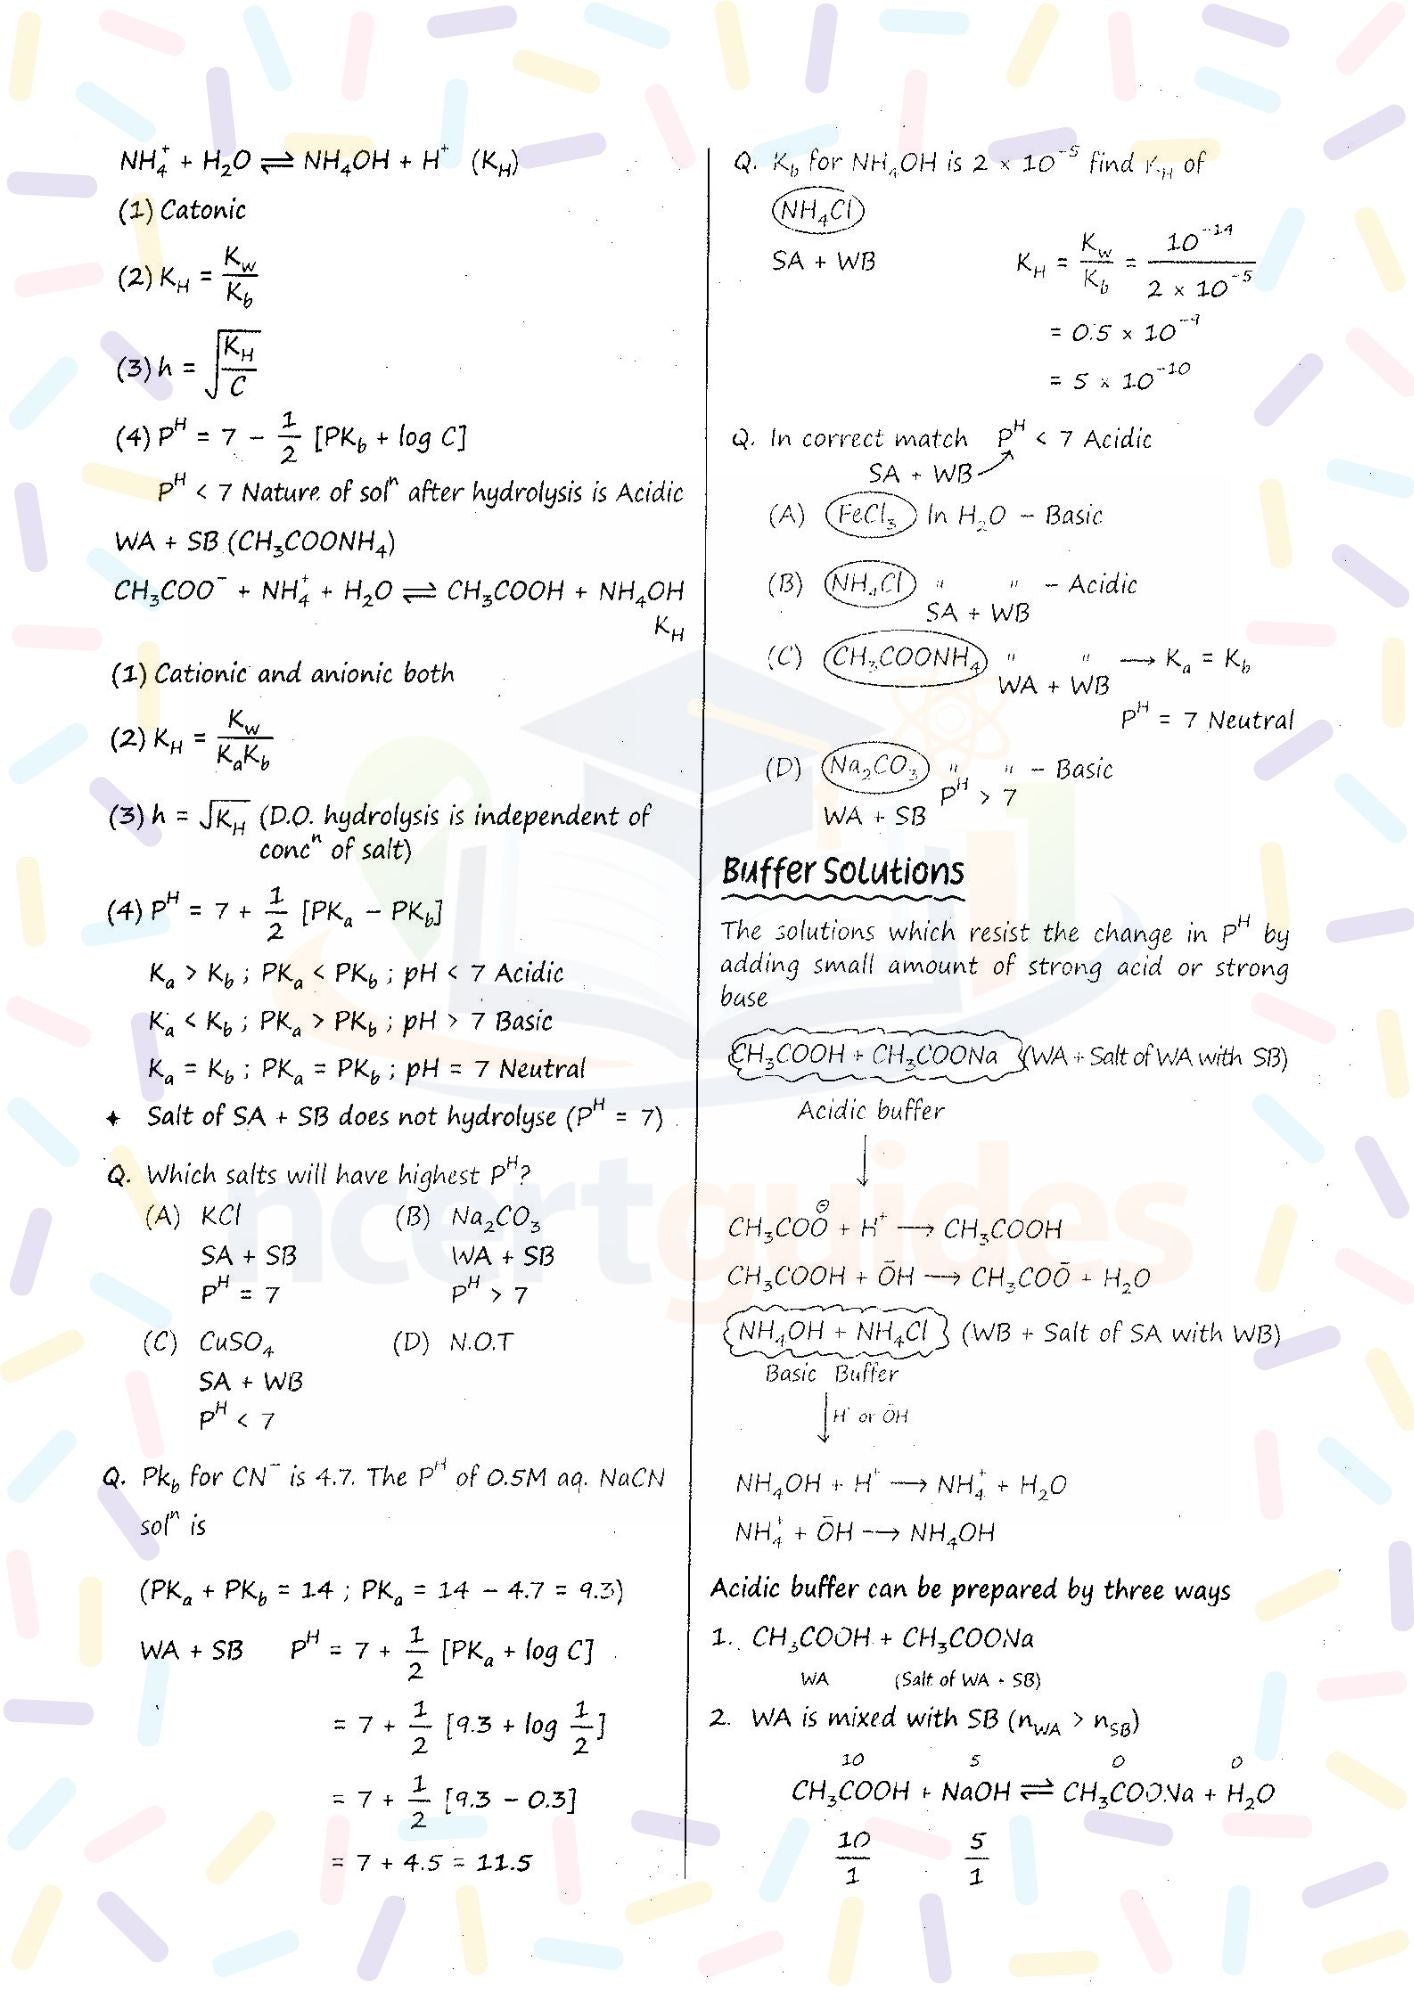 NH₄⁺ + H₂O ⇌ NH₄OH + H⁺ (K_H)
(1) Catonic
(2) K_H = K_w / K_b
(3) h = √(K_H / C)
(4) P^H = 7 − 1/2 [PK_b + log C]
P^H < 7 Nature of solⁿ after hydrolysis is Acidic
WA + SB (CH₃COONH₄)
CH₃COO⁻ + NH₄⁺ + H₂O ⇌ CH₃COOH + NH₄OH
K_H
(1) Cationic and anionic both
(2) K_H = K_w / K_aK_b
(3) h = √K_H (D.O. hydrolysis is independent of
concⁿ of salt)
(4) P^H = 7 + 1/2 [PK_a − PK_b]
K_a > K_b ; PK_a < PK_b ; pH < 7 Acidic
K_a < K_b ; PK_a > PK_b ; pH > 7 Basic
K_a = K_b ; PK_a = PK_b ; pH = 7 Neutral
✦ Salt of SA + SB does not hydrolyse (P^H = 7)
Q. Which salts will have highest P^H?
(A) KCl (B) Na₂CO₃
SA + SB WA + SB
P^H = 7 P^H > 7
(C) CuSO₄ (D) N.O.T
SA + WB
P^H < 7
Q. Pk_b for CN⁻ is 4.7. The P^H of 0.5M aq. NaCN
solⁿ is
(PK_a + PK_b = 14 ; PK_a = 14 − 4.7 = 9.3)
WA + SB P^H = 7 + 1/2 [PK_a + log C]
= 7 + 1/2 [9.3 + log 1/2]
= 7 + 1/2 [9.3 − 0.3]
= 7 + 4.5 = 11.5
Q. K_b for NH₄OH is 2 × 10⁻⁵ find K_H of
NH₄Cl
SA + WB K_H = K_w / K_b = 10⁻¹⁴ / 2 × 10⁻⁵
= 0.5 × 10⁻⁹
= 5 × 10⁻¹⁰
Q. In correct match P^H < 7 Acidic
SA + WB
(A) FeCl₃ In H₂O − Basic
(B) NH₄Cl " " − Acidic
SA + WB
(C) CH₃COONH₄ " " → K_a = K_b
WA + WB
P^H = 7 Neutral
(D) Na₂CO₃ " " − Basic
P^H > 7
WA + SB
Buffer Solutions
The solutions which resist the change in P^H by
adding small amount of strong acid or strong
base
CH₃COOH + CH₃COONa (WA + Salt of WA with SB)
Acidic buffer
↓
CH₃COO⊖ + H⁺ → CH₃COOH
CH₃COOH + ŌH → CH₃COŌ + H₂O
NH₄OH + NH₄Cl (WB + Salt of SA with WB)
Basic Buffer
↓ H⁺ or ŌH
NH₄OH + H⁺ → NH₄⁺ + H₂O
NH₄⁺ + ŌH → NH₄OH
Acidic buffer can be prepared by three ways
1. CH₃COOH + CH₃COONa
WA (Salt of WA + SB)
2. WA is mixed with SB (n_WA > n_SB)
10 5 0 0
CH₃COOH + NaOH ⇌ CH₃COONa + H₂O
10/1 5/1
ncertguides